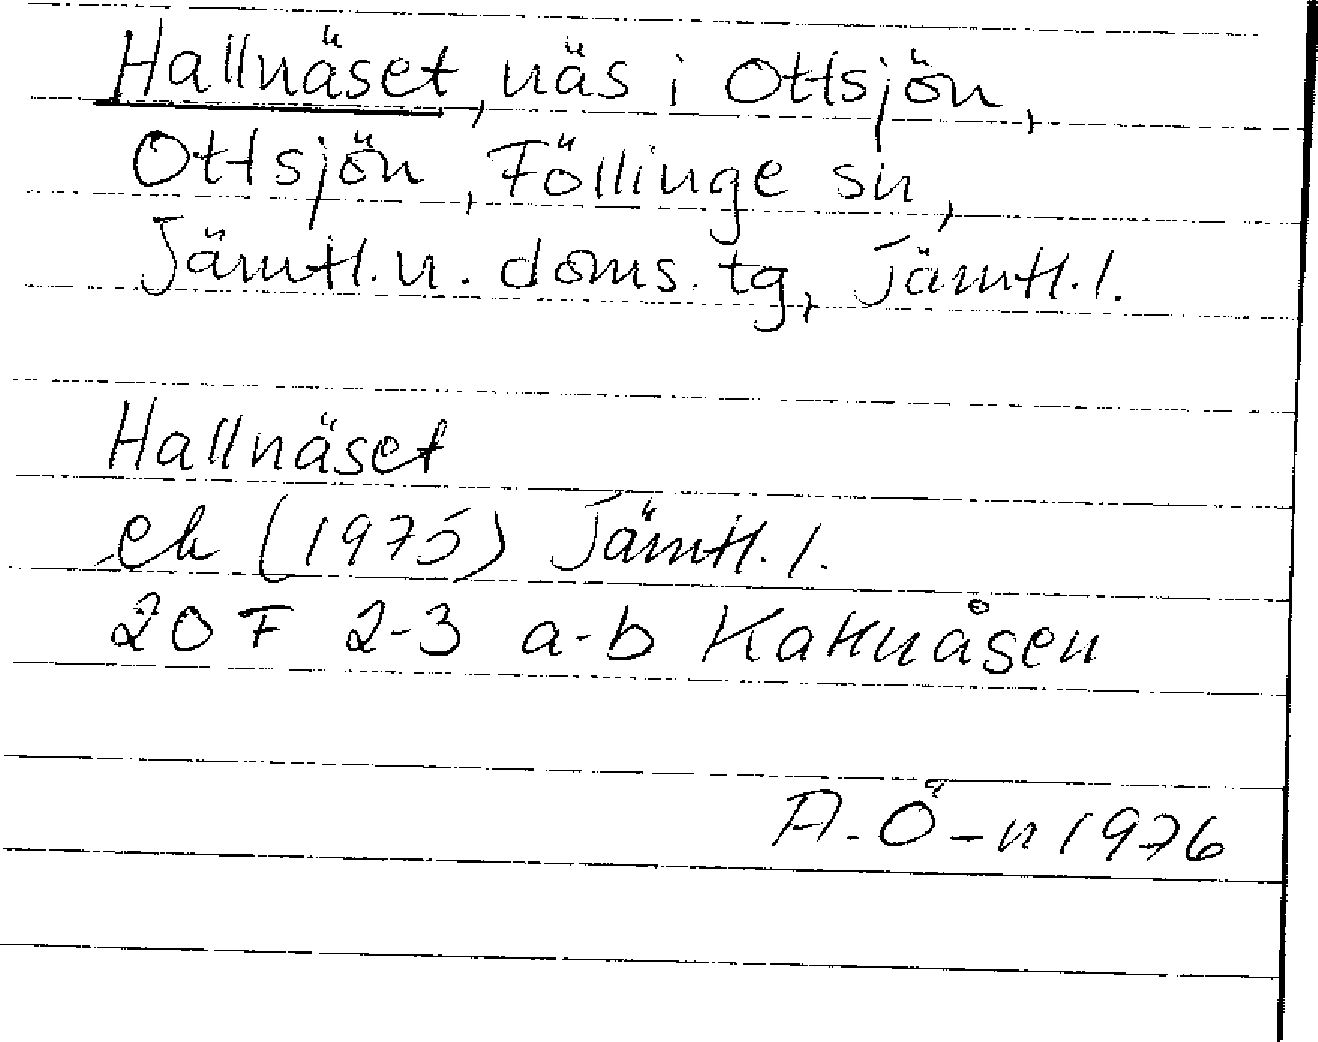 Hallnäset, näs i Ottsjön,
Ottsjön, Föllinge sn,
Jämtl. n. doms. tg, Jämtl. l.
Hallnäset
ek (1975) Jämtl. l.
20 F 2-3 a-b Kattnåsen
A. Ö-n 1976